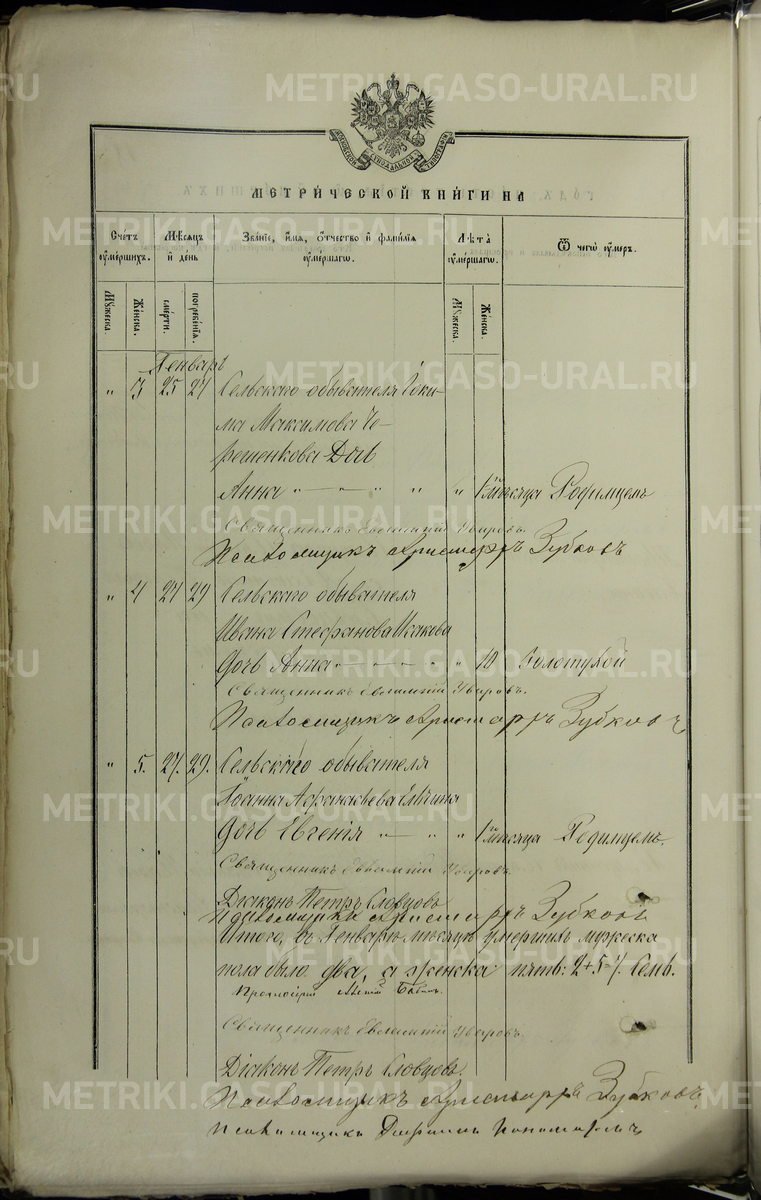 METRIKI.GASO-URAL.RU
МЕТРИЧЕСКОЙ КНИГИ НА
Счетъ оумершихъ.
Мѣсяцъ и день
Званїе, имя, отчество и фамилїя оумершагѡ.
Лѣта оумершагѡ.
Ѿ чегѡ оумеръ.
Мꙋжеска.
Женска.
смерти.
погребенїя.
Мꙋжеска.
Женска.
Генварь
" 3 25 27 Сельскаго обывателя
ма Максимова Че-
решенкова Дочь
Анна " — " — " " " 1 мѣсяца Родимцемъ
Священникъ Евѳимій Уваровъ.
Псаломщикъ Аристархъ Зубковъ
" 4 27 29 Сельскаго обывателя
Ивана Стефанова Исакова
дочь Анна " 10 Золотухой
Священникъ Евѳимій Уваровъ.
Псаломщикъ Аристархъ Зубковъ
" 5. 27. 29. Сельскаго обывателя
Іоанна Аѳанасьева
дочь Евгенія " — " " 1 мѣсяца Родимцемъ.
Священникъ Евѳимій Уваровъ.
Діаконъ Петръ Словцовъ
Псаломщикъ Аристархъ Зубковъ
Итого въ Генварѣ мѣсяцѣ умершихъ мужеска
пола было два, а женска пять: 2+5=7. Семь.
Священникъ Евѳимій Уваровъ
Діаконъ Петръ Словцовъ.
Псаломщикъ Аристархъ Зубковъ
Псаломщикъ Пономаревъ